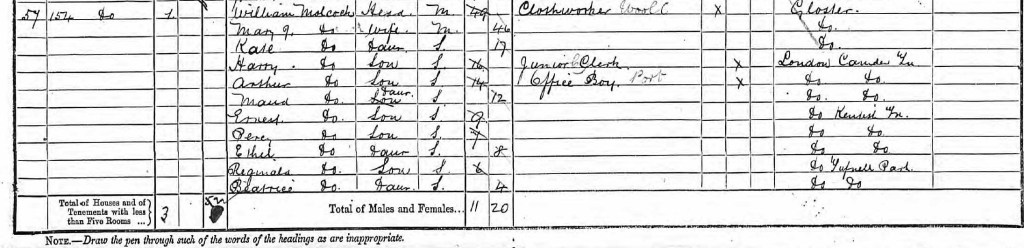 57 154 Do 1 William Molcock Head M. 49 Clothworker Wool C X Gloster.
Mary J. Do Wife M. 46 Do.
Kate Do Daur S. 17 Do.
Harry. Do Son S. 16 Junior Clerk X London Camden Tn
Arthur Do Son S. 14 Office Boy. Port X Do Do.
Maud Do Son Daur. S. 12 Do. Do.
Ernest. Do Son S. 9 Do Kentish Tn.
Percy Do Son S. 7 Do Do
Ethel Do Daur S. 8 Do Do
Reginald Do. Son S. 6 Do Tufnell Park
Beatrice Do. Daur. S. 4 Do Do
Total of Houses and of Tenements with less than Five Rooms ... 3 Total of Males and Females... 11 20
NOTE.—Draw the pen through such of the words of the headings as are inappropriate.